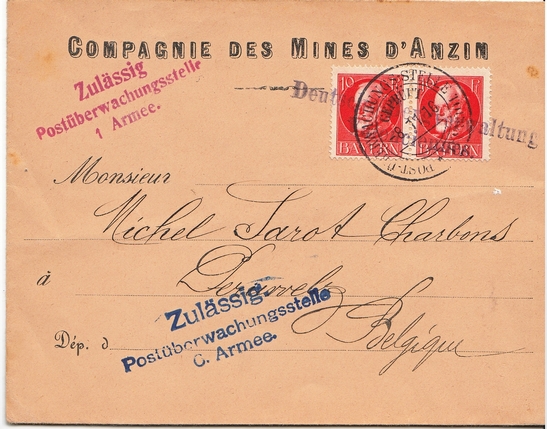 COMPAGNIE DES MINES D'ANZIN
Zulässig
Postüberwachungsstelle
1 Armee.
10 PF
BAYERN BAYERN
GEPRÜFT
Monsieur
Michel Sarot Charbons
à
Zulässig.
Postüberwachungsstelle
C. Armee.
Belgique
Dép. d